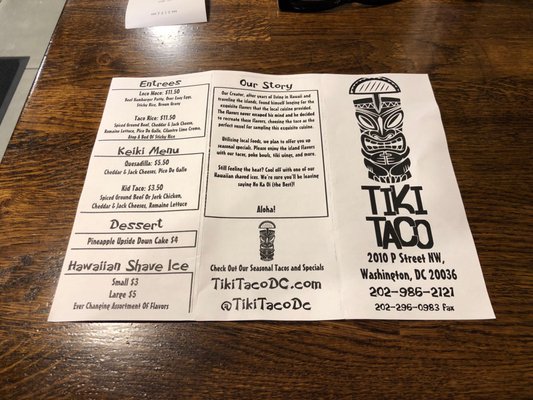 Entrees
Loco Moco: $11.50
Beef Hamburger Patty, Over Easy Eggs,
Sticky Rice, Brown Gravy
Taco Rice: $11.50
Spiced Ground Beef, Cheddar & Jack Cheese,
Romaine Lettuce, Pico De Gallo, Cilantro Lime Crema,
Bed Of Sticky Rice
Keiki Menu
Quesadilla: $5.50
Cheddar & Jack Cheeses, Pico De Gallo
Kid Taco: $3.50
Spiced Ground Beef Or Jerk Chicken,
Cheddar & Jack Cheeses, Romaine Lettuce
Dessert
Pineapple Upside Down Cake $4
Hawaiian Shave Ice
Small $3
Large $5
Ever Changing Assortment Of Flavors
Our Story
Our Creator, after years of living in Hawaii and
traveling the islands, found himself longing for the
exquisite flavors that the local cuisine provided.
The flavors never escaped his mind and he decided
to recreate these flavors, choosing the taco as the
perfect vessel for sampling this exquisite cuisine.
Utilizing local foods, we plan to offer you up
seasonal specials. Please enjoy the island flavors
with our tacos, poke bowls, tiki wings, and more.
Still feeling the heat? Cool off with one of our
Hawaiian shaved ices. We're sure you'll be leaving
saying No Ka Oi (the Best)!
Aloha!
Check Out Our Seasonal Tacos and Specials
TikiTacoDC.com
@TikiTacoDc
TIKI
TACO
2010 P Street NW,
Washington, DC 20036
202-986-2121
202-296-0983 Fax